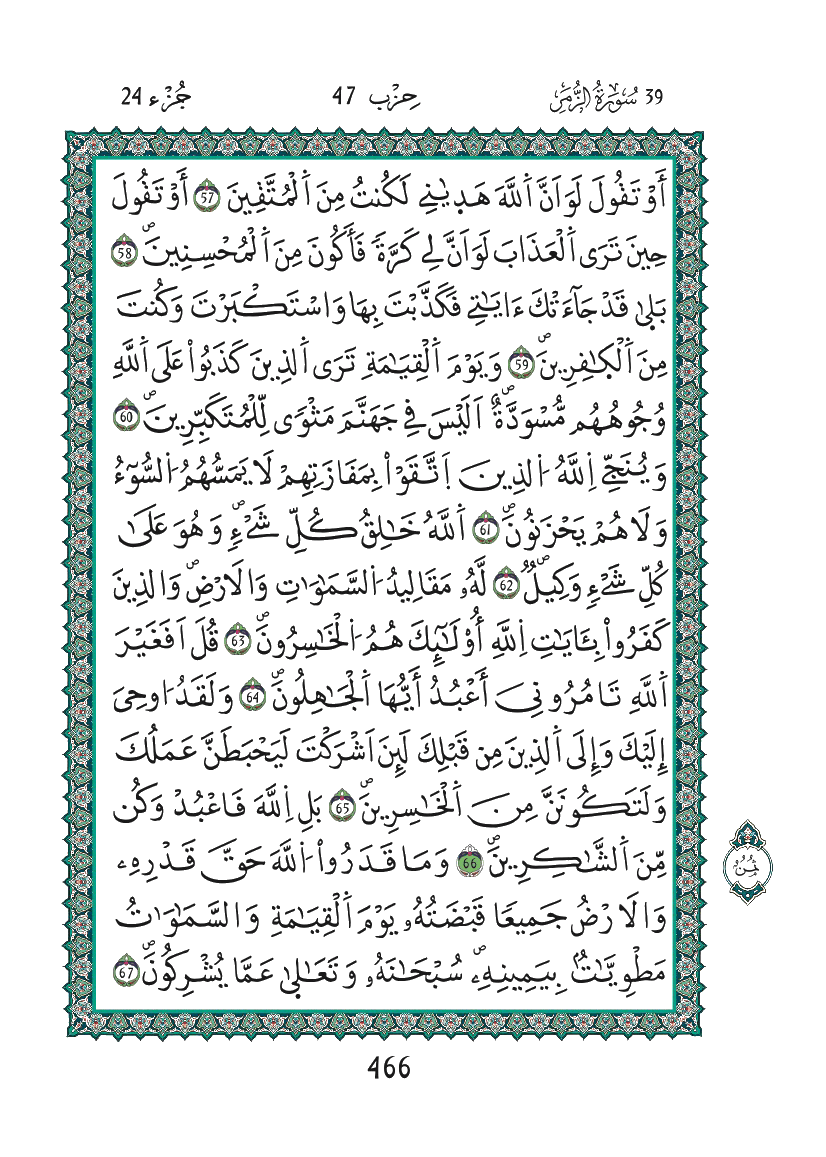 39 سُورَةُ الزُّمَرِ
حِزْب 47
جُزْء 24
أَوْ تَقُولَ لَوَ اَنَّ اَ۬للَّهَ هَد۪يٰنِے لَكُنتُ مِنَ اَ۬لْمُتَّقِينَ 57 أَوْ تَقُولَ
حِينَ تَرَى اَ۬لْعَذَابَ لَوَ اَنَّ لِے كَرَّةٗ فَأَكُونَ مِنَ اَ۬لْمُحْسِنِينَۖ 58
بَل۪ىٰ قَدْ جَآءَتْكَ ءَايَٰتِے فَكَذَّبْتَ بِهَا وَاسْتَكْبَرْتَ وَكُنتَ
مِنَ اَ۬لْكٰ۪فِرِينَۖ 59 وَيَوْمَ اَ۬لْقِيَٰمَةِ تَرَى اَ۬لذِينَ كَذَبُواْ عَلَى اَ۬للَّهِ
وُجُوهُهُم مُّسْوَدَّةٌۖ اَلَيْسَ فِے جَهَنَّمَ مَثْوٗى لِّلْمُتَكَبِّرِينَۖ 60
وَيُنَجِّے اِ۬للَّهُ اُ۬لذِينَ اَ۪تَّقَوْاْ بِمَفَازَتِهِمْ لَا يَمَسُّهُمُ اُ۬لسُّوٓءُ
وَلَا هُمْ يَحْزَنُونَۖ 61 اَ۬للَّهُ خَٰلِقُ كُلِّ شَےْءٖۖ وَهُوَ عَلَىٰ
كُلِّ شَےْءٖ وَكِيلٞۖ 62 لَّهُۥ مَقَالِيدُ اُ۬لسَّمَٰوَٰتِ وَالَارْضِۖ وَالذِينَ
كَفَرُواْ بِـَٔايَٰتِ اِ۬للَّهِ أُوْلَٰٓئِكَ هُمُ اُ۬لْخَٰسِرُونَۖ 63 قُلَ اَفَغَيْرَ
اَ۬للَّهِ تَامُرُونِيَ أَعْبُدُ أَيُّهَا اَ۬لْجَٰهِلُونَۖ 64 وَلَقَدُ ا۟وحِيَ
إِلَيْكَ وَإِلَى اَ۬لذِينَ مِن قَبْلِكَ لَئِنَ اَشْرَكْتَ لَيَحْبَطَنَّ عَمَلُكَ
وَلَتَكُونَنَّ مِنَ اَ۬لْخَٰسِرِينَۖ 65 بَلِ اِ۬للَّهَ فَاعْبُدْ وَكُن
مِّنَ اَ۬لشَّٰكِرِينَۖ 66 وَمَا قَدَرُواْ اُ۬للَّهَ حَقَّ قَدْرِهِۦ
وَالَارْضُ جَمِيعٗا قَبْضَتُهُۥ يَوْمَ اَ۬لْقِيَٰمَةِ وَالسَّمَٰوَٰتُ
مَطْوِيَّٰتُۢ بِيَمِينِهِۦۖ سُبْحَٰنَهُۥ وَتَعَٰل۪ىٰ عَمَّا يُشْرِكُونَۖ 67
ثُمُن
466